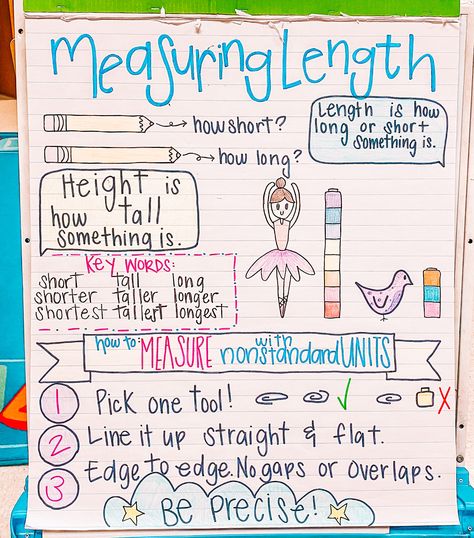 Measuring Length
how short?
how long?
Length is how
long or short
something is.
Height is
how tall
something is.
KEY WORDS:
short tall long
shorter taller longer
shortest tallest longest
how to: MEASURE with nonstandard UNITS
1 Pick one tool!
2 Line it up straight & flat.
3 Edge to edge. No gaps or overlaps.
Be Precise!